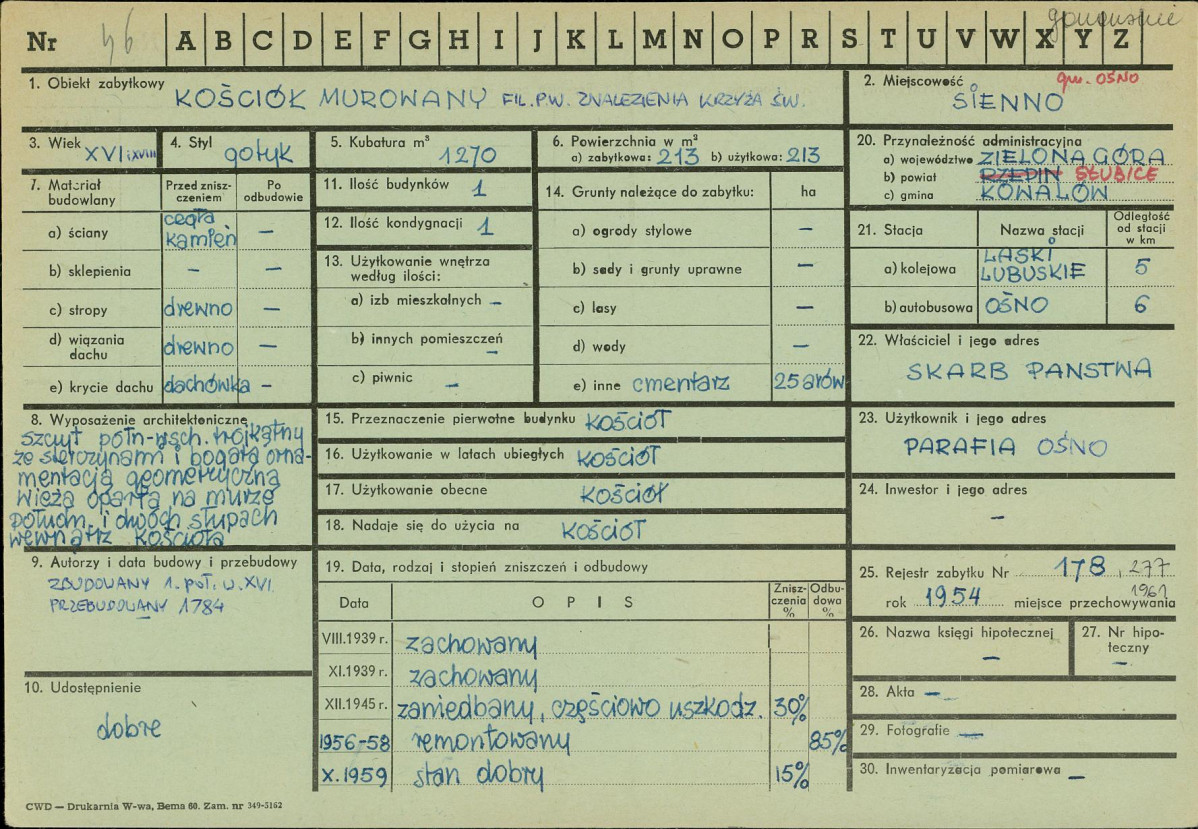 Nr 46 A B C D E F G H I J K L M N O P R S T U V W X Y Z
1. Obiekt zabytkowy KOŚCIÓŁ MUROWANY FIL. P.W. ZNALEZIENIA KRZYŻA ŚW.
2. Miejscowość gm. OŚNO
SIENNO
3. Wiek XVI i XVIII
4. Styl gotyk
5. Kubatura m³ 1270
6. Powierzchnia w m²
a) zabytkowa: 213 b) użytkowa: 213
7. Materiał budowlany
Przed zniszczeniem
Po odbudowie
a) ściany cegła kamień —
b) sklepienia — —
c) stropy drewno —
d) wiązania dachu drewno —
e) krycie dachu dachówka —
8. Wyposażenie architektoniczne
szczyt półn-wsch. trójkątny
ze sterczynami i bogatą orna-
mentacją geometryczną
wieża oparta na murze
połudn. i dwóch słupach
wewnątrz kościoła
9. Autorzy i data budowy i przebudowy
ZBUDOWANY 1. poł. w. XVI
PRZEBUDOWANY 1784
10. Udostępnienie
dobre
11. Ilość budynków 1
12. Ilość kondygnacji 1
13. Użytkowanie wnętrza
według ilości:
a) izb mieszkalnych —
b) innych pomieszczeń —
c) piwnic —
14. Grunty należące do zabytku: ha
a) ogrody stylowe —
b) sady i grunty uprawne —
c) lasy —
d) wody —
e) inne cmentarz 25 arów
15. Przeznaczenie pierwotne budynku KOŚCIÓŁ
16. Użytkowanie w latach ubiegłych KOŚCIÓŁ
17. Użytkowanie obecne KOŚCIÓŁ
18. Nadaje się do użycia na KOŚCIÓŁ
19. Data, rodzaj i stopień zniszczeń i odbudowy
Data OPIS Zniszczenia % Odbudowa %
VIII.1939 r. zachowany
XI.1939 r. zachowany
XII.1945 r. zaniedbany, częściowo uszkodz. 30%
1956-58 remontowany 85%
X.1959 stan dobry 15%
20. Przynależność administracyjna
a) województwo ZIELONA GÓRA
b) powiat RZEPIN SŁUBICE
c) gmina KOWALÓW
21. Stacja Nazwa stacji Odległość od stacji w km
a) kolejowa LASKI LUBUSKIE 5
b) autobusowa OŚNO 6
22. Właściciel i jego adres
SKARB PANSTWA
23. Użytkownik i jego adres
PARAFIA OŚNO
24. Inwestor i jego adres
—
25. Rejestr zabytku Nr 178, 277
rok 1954 1961 miejsce przechowywania
26. Nazwa księgi hipotecznej
—
27. Nr hipoteczny
—
28. Akta —
29. Fotografie —
30. Inwentaryzacja pomiarowa —
CWD — Drukarnia W-wa, Bema 60. Zam. nr 349-5162